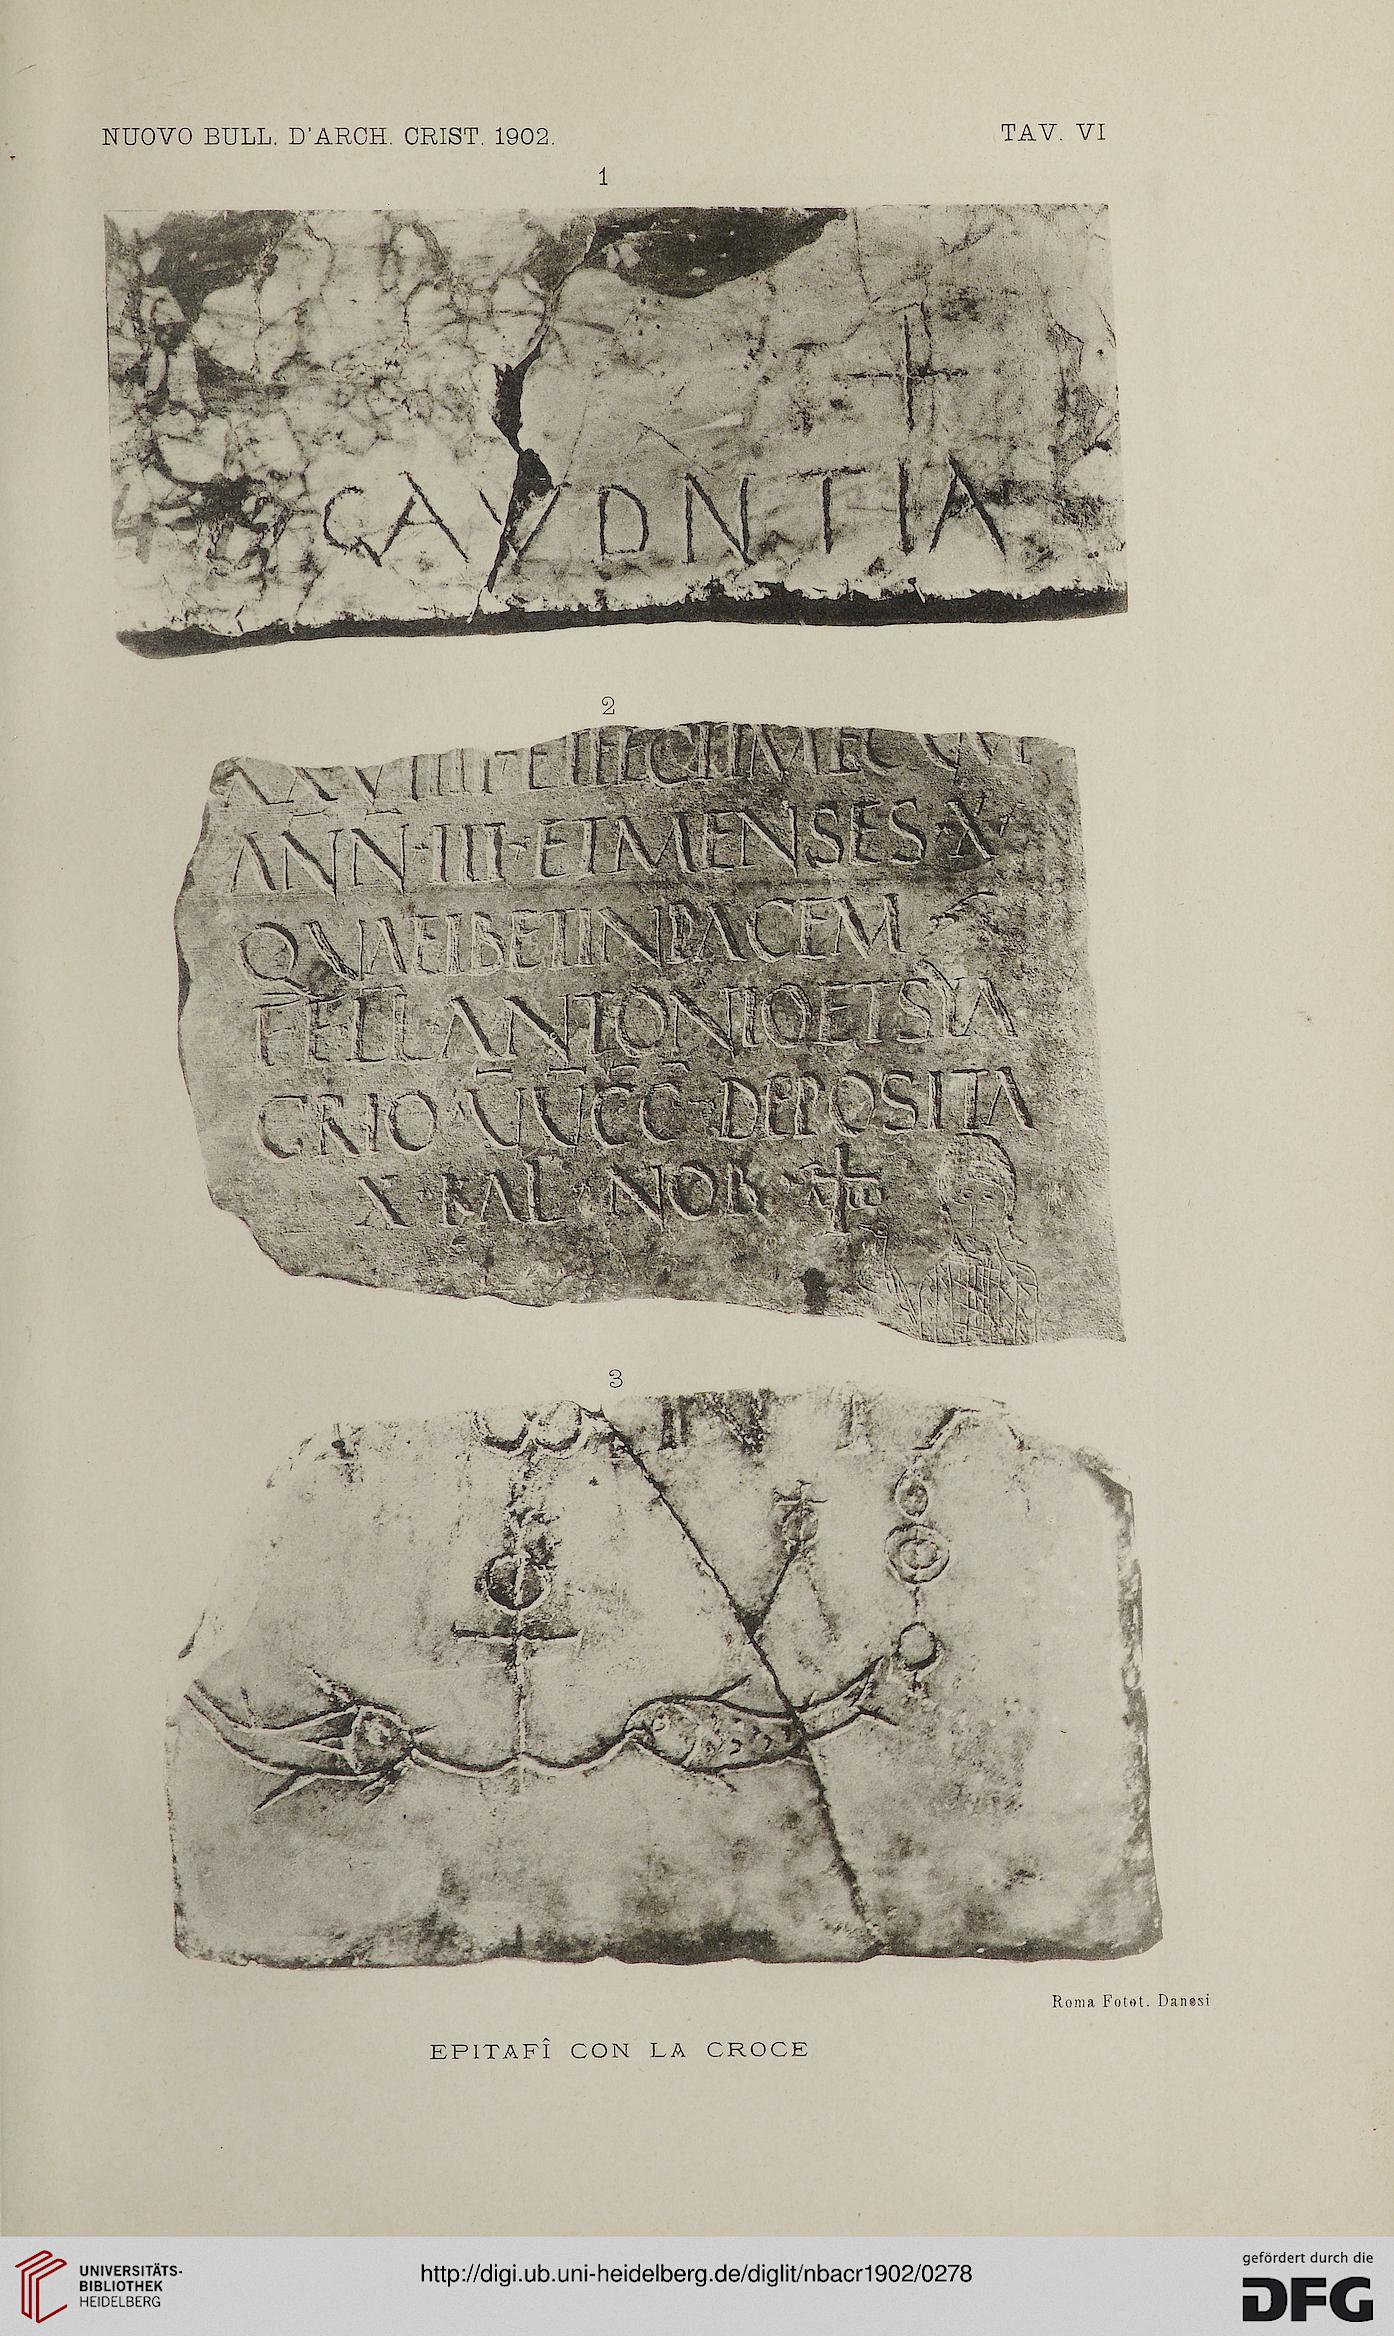 NUOVO BULL. D'ARCH. CRIST. 1902.
TAV. VI
1
GAVDNTIA
2
XXVIIII ET FECIT MEC QVI
ANN · III · ET MENSES · X
QVAE IBET IN PACEM
FELL · ANTONIO ET SYA
GRIO · VVCC · DEPOSITA
X · KAL · NOB ·
3
Roma Fotot. Danesi
EPITAFÎ CON LA CROCE
UNIVERSITÄTS-
BIBLIOTHEK
HEIDELBERG
http://digi.ub.uni-heidelberg.de/diglit/nbacr1902/0278
gefördert durch die
DFG